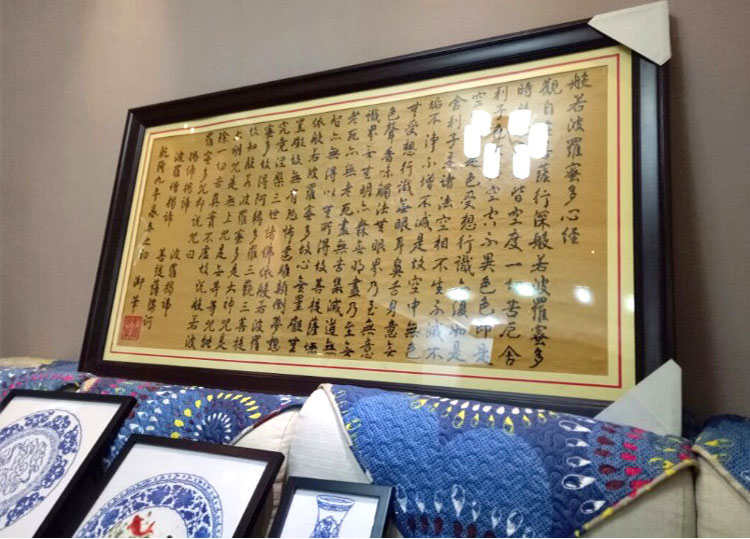 般若波羅蜜多心經
觀自在菩薩行深般若波羅蜜多
時皆空度一切苦厄舍
利子空空不異色色即是
空是色受想行識亦復如是
舍利子是諸法空相不生不滅不
垢不淨不增不減是故空中無色
無受想行識無眼耳鼻舌身意無
色聲香味觸法無眼界乃至無意
識界無無明亦無無明盡乃至無
老死亦無老死盡無苦集滅道無
智亦無得以無所得故菩提薩埵
依般若波羅蜜多故心無罣礙無
罣礙故無有恐怖遠離顛倒夢想
究竟涅槃三世諸佛依般若波羅
蜜多故得阿耨多羅三藐三菩提
故知般若波羅蜜多是大神咒是
大明咒是無上咒是無等等咒能
除一切苦真實不虛故說般若波
羅蜜多咒即說咒曰
揭諦揭諦 波羅揭諦
波羅僧揭諦 菩提薩婆訶
乾隆九年春之初 御筆